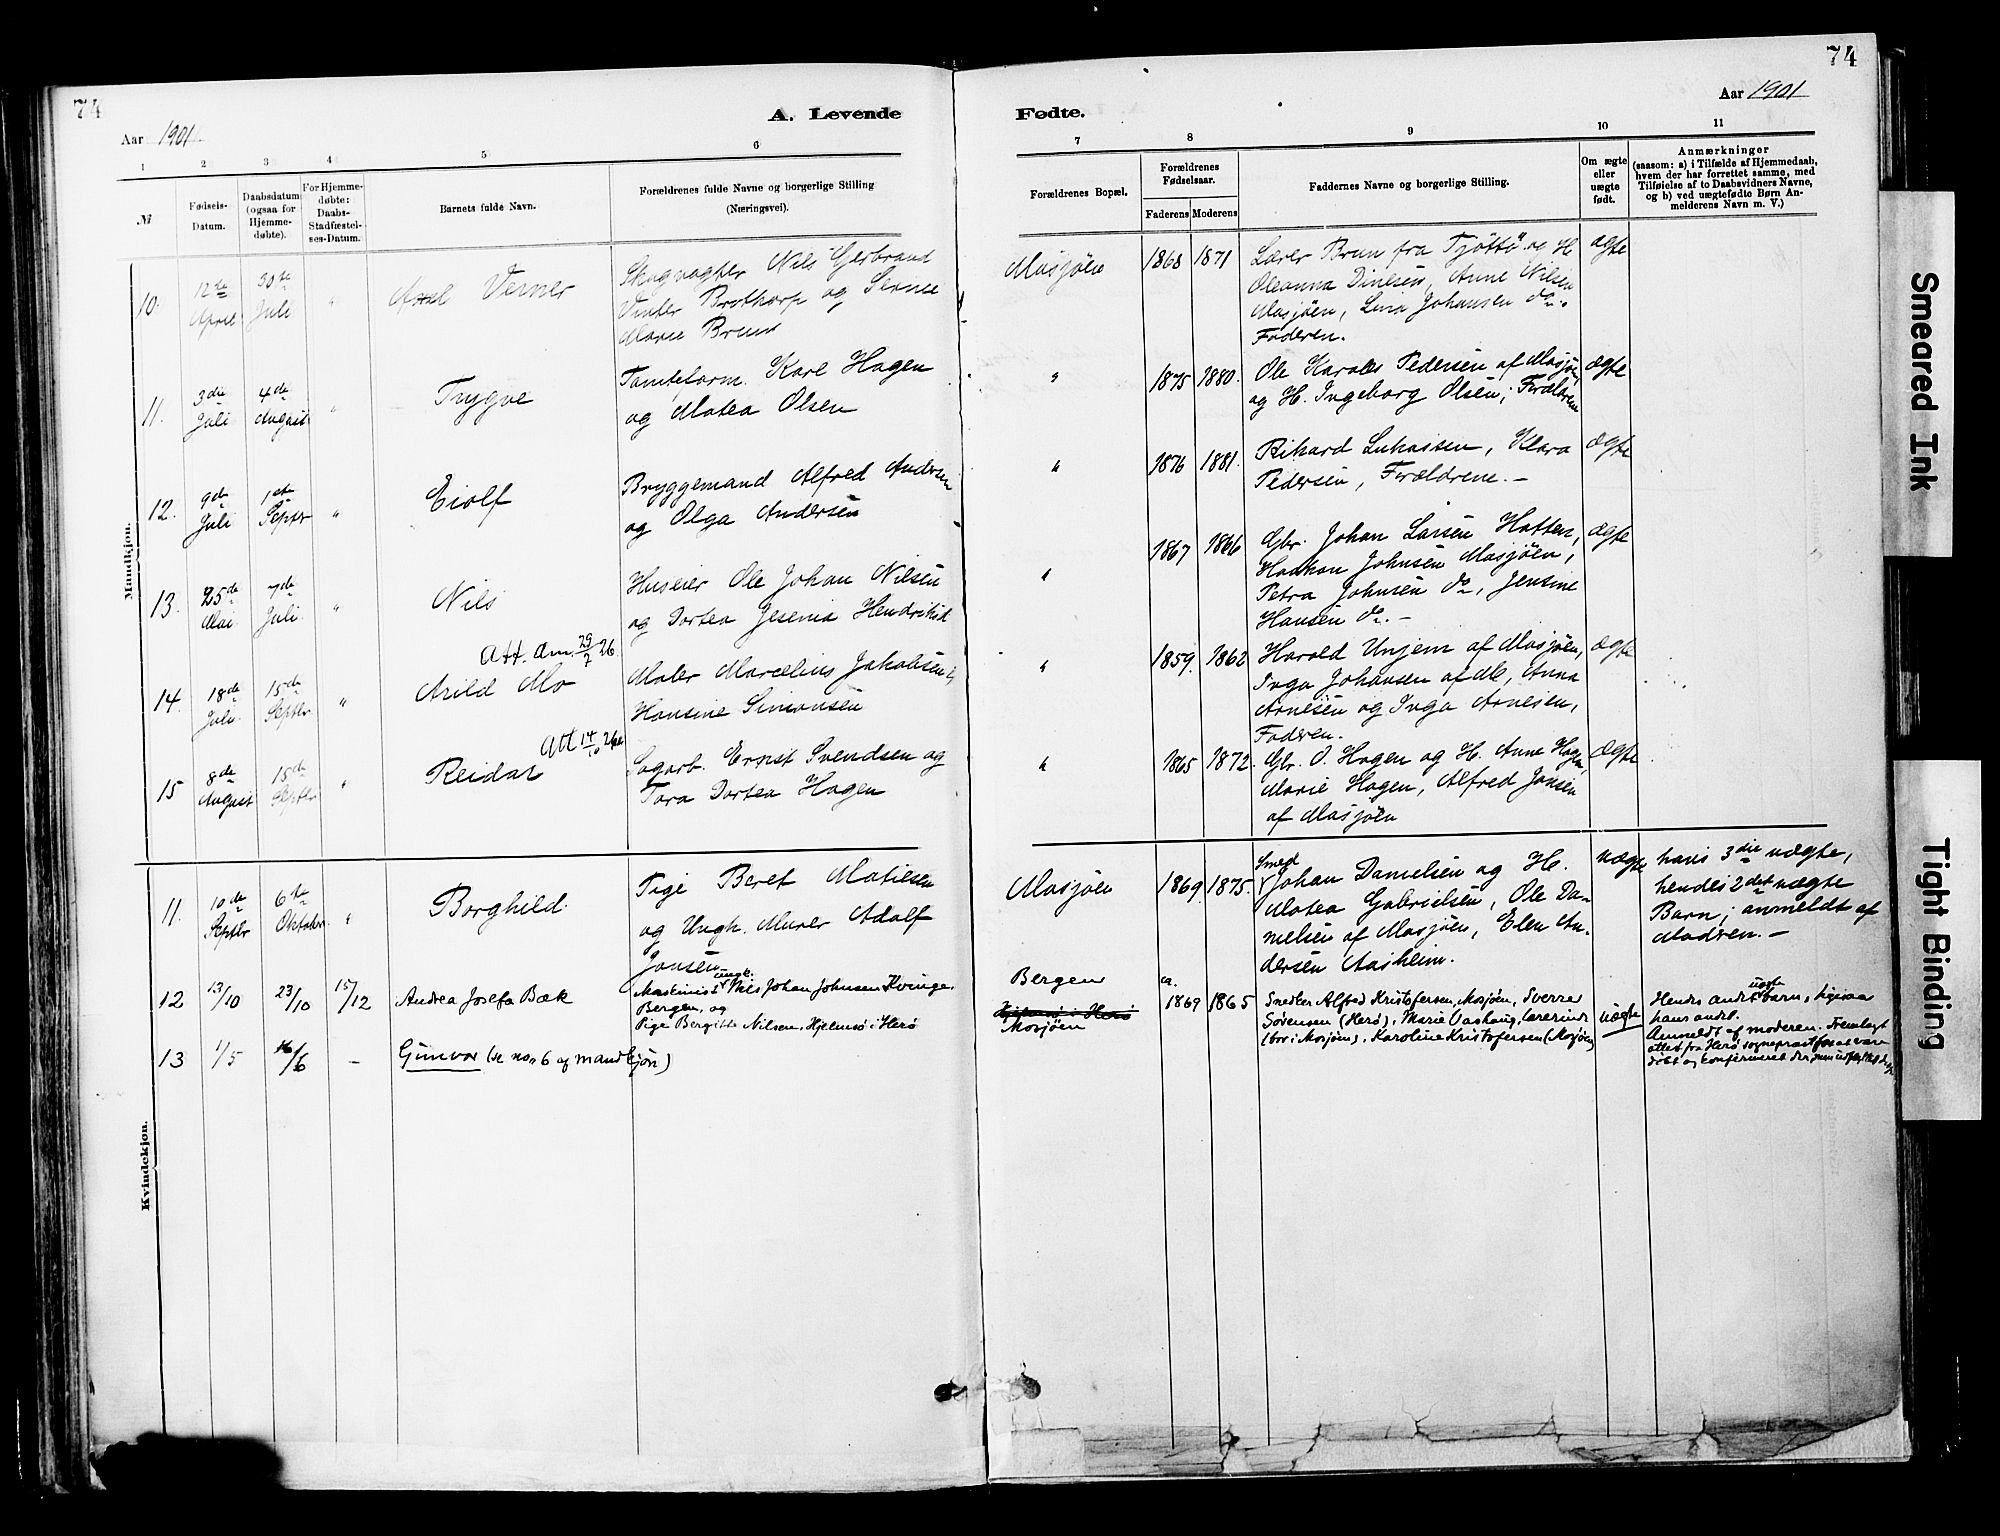 74
74
Aar 1901.
A. Levende
Fødte.
Aar 1901
1 2 3 4 5 6
7 8 9 10 11
№
Fødsels-Datum.
Daabsdatum (ogsaa for Hjemmedøbte).
For Hjemmedøbte: Daabs-Stadfæstelses-Datum.
Barnets fulde Navn.
Forældrenes fulde Navne og borgerlige Stilling
(Næringsvei).
Forældrenes Bopæl.
Forældrenes Fødselsaar.
Faderens Moderens
Faddernes Navne og borgerlige Stilling.
Om ægte eller uægte født.
Anmærkninger
(saasom: a) i Tilfælde af Hjemmedaab,
hvem der har forrettet samme, med
Tilføielse af to Daabsvidners Navne,
og b) ved uægtefødte Børn An-
melderens Navn m. V.)
Mandkjøn.
10. 12te April 30te Juli " Axel Verner
Skogvogter Nils Gerbrand
Vinter Brothorp og
Marie Brun
Mosjøen 1868 1871
Lærer Brun fra Tjøtta og H.
Oleanna Dinesen, Anne Nilsen
Mosjøen, Lina Johansen do.
Faderen.
ægte
11. 3die Juli 4de August " Trygve
Tomteform. Karl Hagen
og Matea Olsen
" 1875 1880.
Ole Karoles Pedersen af Mosjøen
og H. Ingeborg Olsen, Forældrene
ægte
12. 9de Juli 1ste Septbr " Eiolf
Bryggemand Alfred Andersen
og Olga Andersen
" 1876 1881.
Rikard Lukassen, Klara
Pedersen, Forældrene. -
ægte
13. 25de Mai 7de Juli " Nils
Huseier Ole Johan Nilsen
og Dortea Jesenia Hendriksd
" 1867 1866
Gbr. Johan Larsen Hatten,
Haakon Johnsen Mosjøen,
Petra Johnsen do, Jensine
Hansen do. -
ægte
Att. Am. 29/7 26.
14. 18de Juli 15de Septbr. " Arild Mo
Maler Marcelius Jakobsen &
Hansine Simonsen
" 1859. 1862
Harald Unjem af Mosjøen,
Inga Johansen af do, Anna
Arnesen og Inga Arnesen,
Faderen.
ægte
Att 14/10 26
15 8de August 15de Septbr " Reidar
Sagarb. Ernst Svendsen og
Tora Dortea Hagen
" 1865 1872.
Gbr. O. Hagen og H. Anne Hagen,
Marie Hagen, Alfred Jonsen
af Mosjøen
ægte
Kvindekjøn.
11. 10de Septbr 6te Oktober. " Borghild.
Pige Beret Matiesen
og Ungk. Murer Adolf
Jonsen
Mosjøen 1869. 1875.
Smed
Johan Danielsen og H.
Matea Gabrielsen, Ole Da-
nielsen af Mosjøen, Elen An-
dersen Aasheim.
uægte
hans 3die uægte,
hendes 2det uægte
Barn; anmeldt af
Modren. -
12 13/10 23/10 15/12 Andrea Josefa Bæk
Maskinist ungk. Nils Johan Johnsen Kvinge,
Bergen, og
Pige Bergitte Nilsen, Hjelmsø i Herø
Bergen
Hjelmsø i Herø
Mosjøen
ca. 1869 1865
Snedker Alfred Kristofersen, Mosjøen, Sverre
Sørensen (Herø), Marie Vashaug, lærerinde
(bor i Mosjøen), Karoline Kristofersen (Mosjøen)
uægte
Hendes andet uægte barn, ligesaa
hans andet.
Anmeldt af moderen. Fremlagt
attest fra Herø sognepræst for at være
døbt og konfirmeret der
13 1/5 16/6 - Gunvor (se no. 6 af mandkjøn)
Smeared Ink
Tight Binding